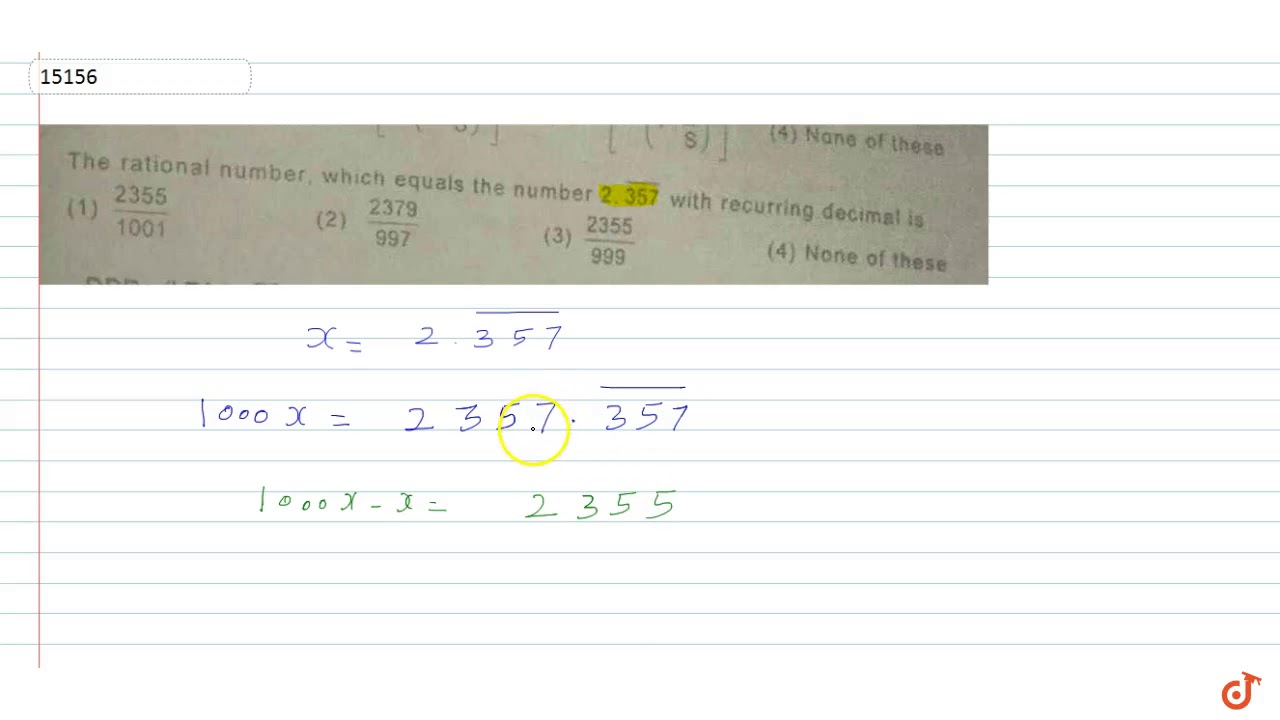 15156
S)] S)] (4) None of these
The rational number, which equals the number 2.\overline{357} with recurring decimal is
(1) 2355/1001 (2) 2379/997 (3) 2355/999 (4) None of these
x = 2.\overline{357}
1000x = 2357.\overline{357}
1000x - x = 2355